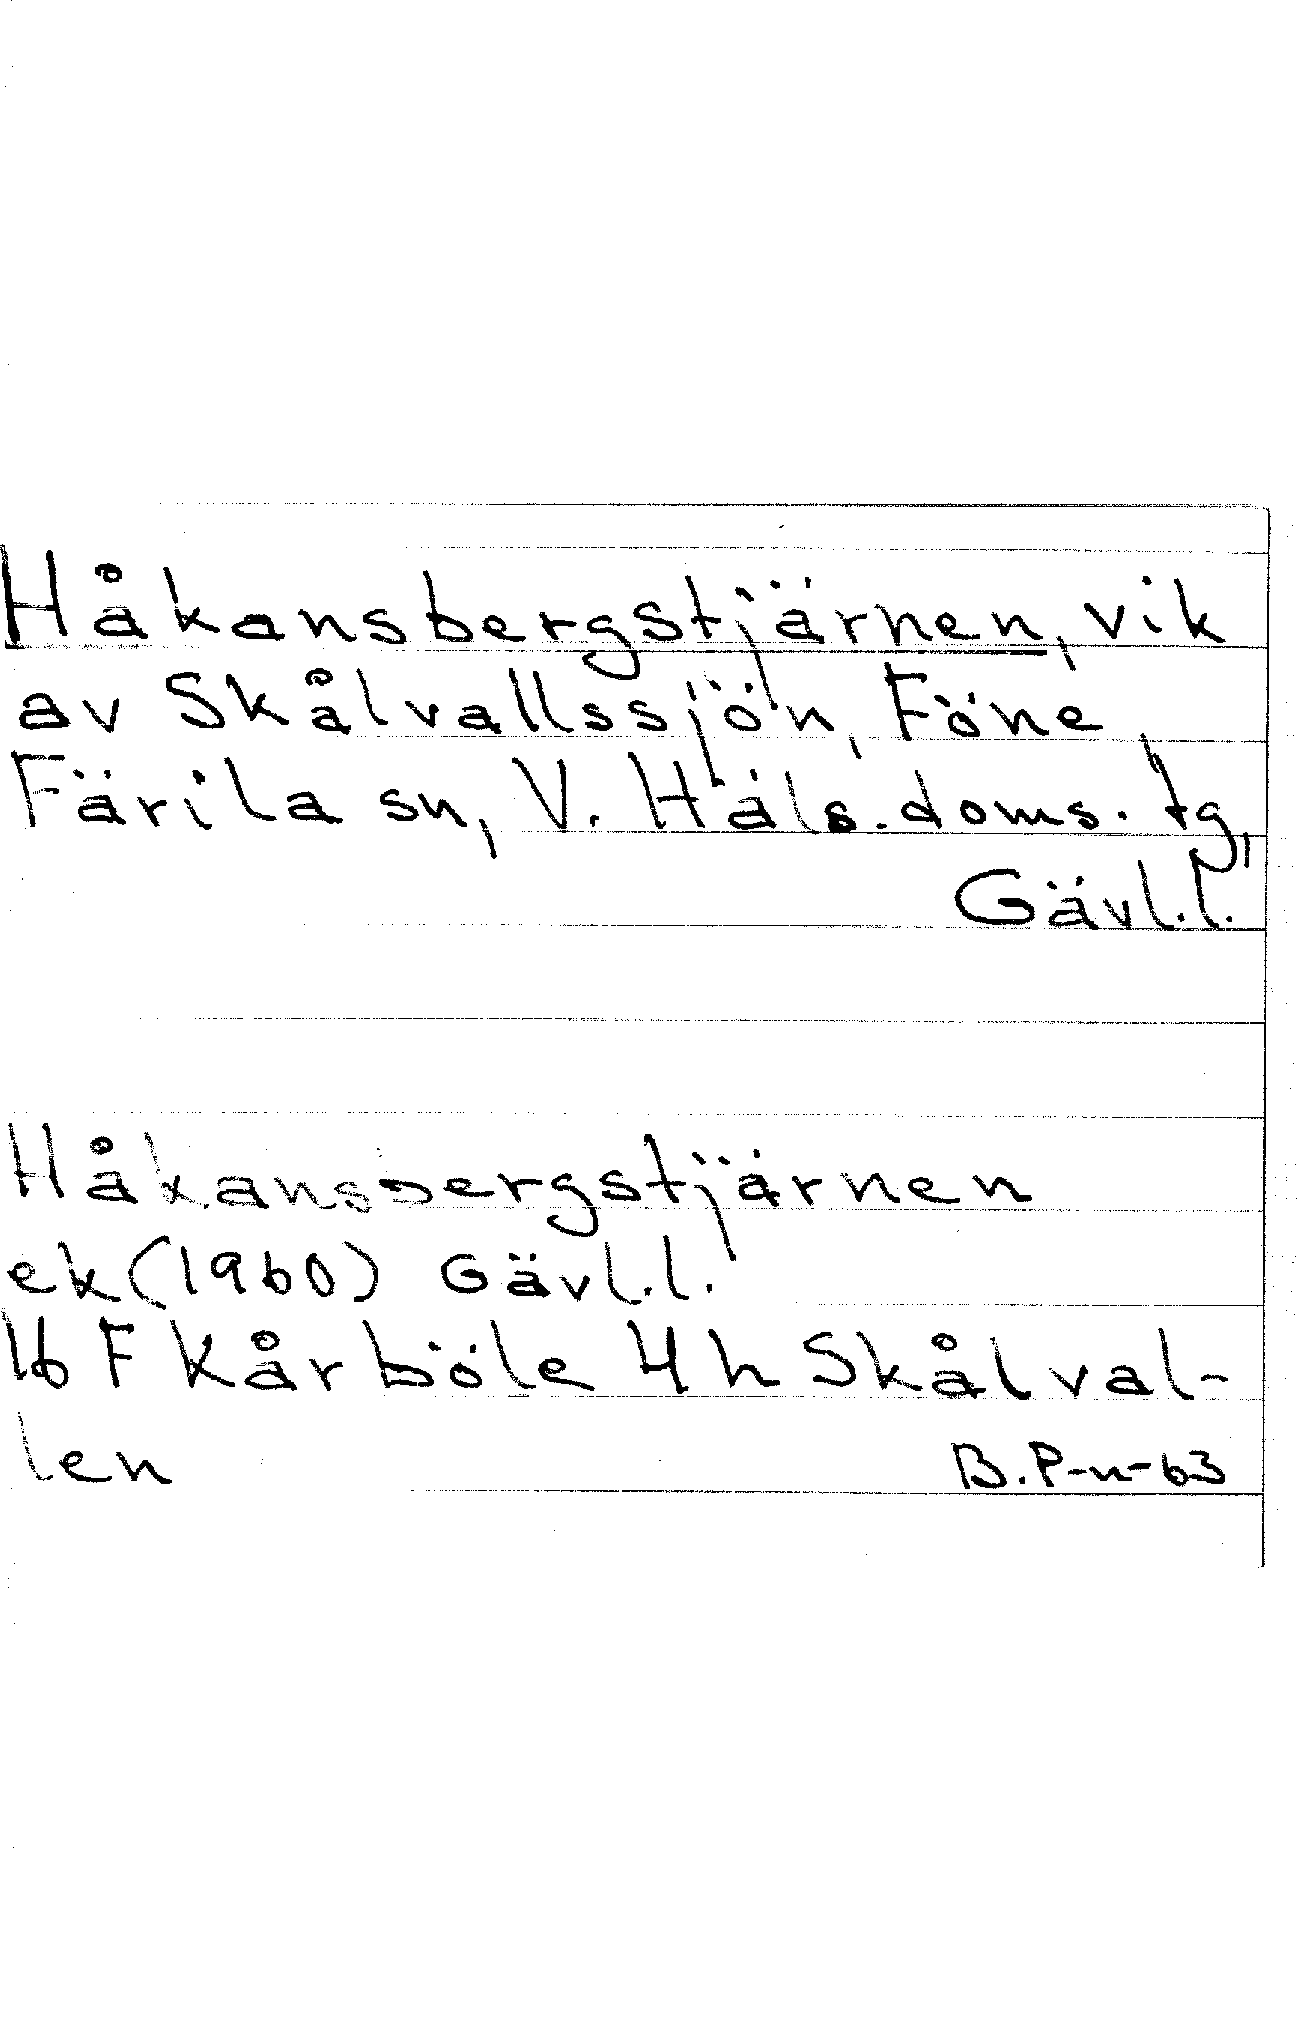 Håkansbergstjärnen, vik
av Skålvallssjön, Föne,
Färila sn, V. Häls. doms. tg,
Gävl.l.
Håkansbergstjärnen
ek (1960) Gävl.l.
16 F Kårböle 4 h Skålval-
len
B.P-n-63